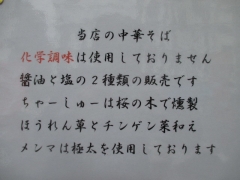 当店の中華そば
化学調味は使用しておりません
醤油と塩の２種類の販売です
ちゃーしゅーは桜の木で燻製
ほうれん草とチンゲン菜和え
メンマは極太を使用しております